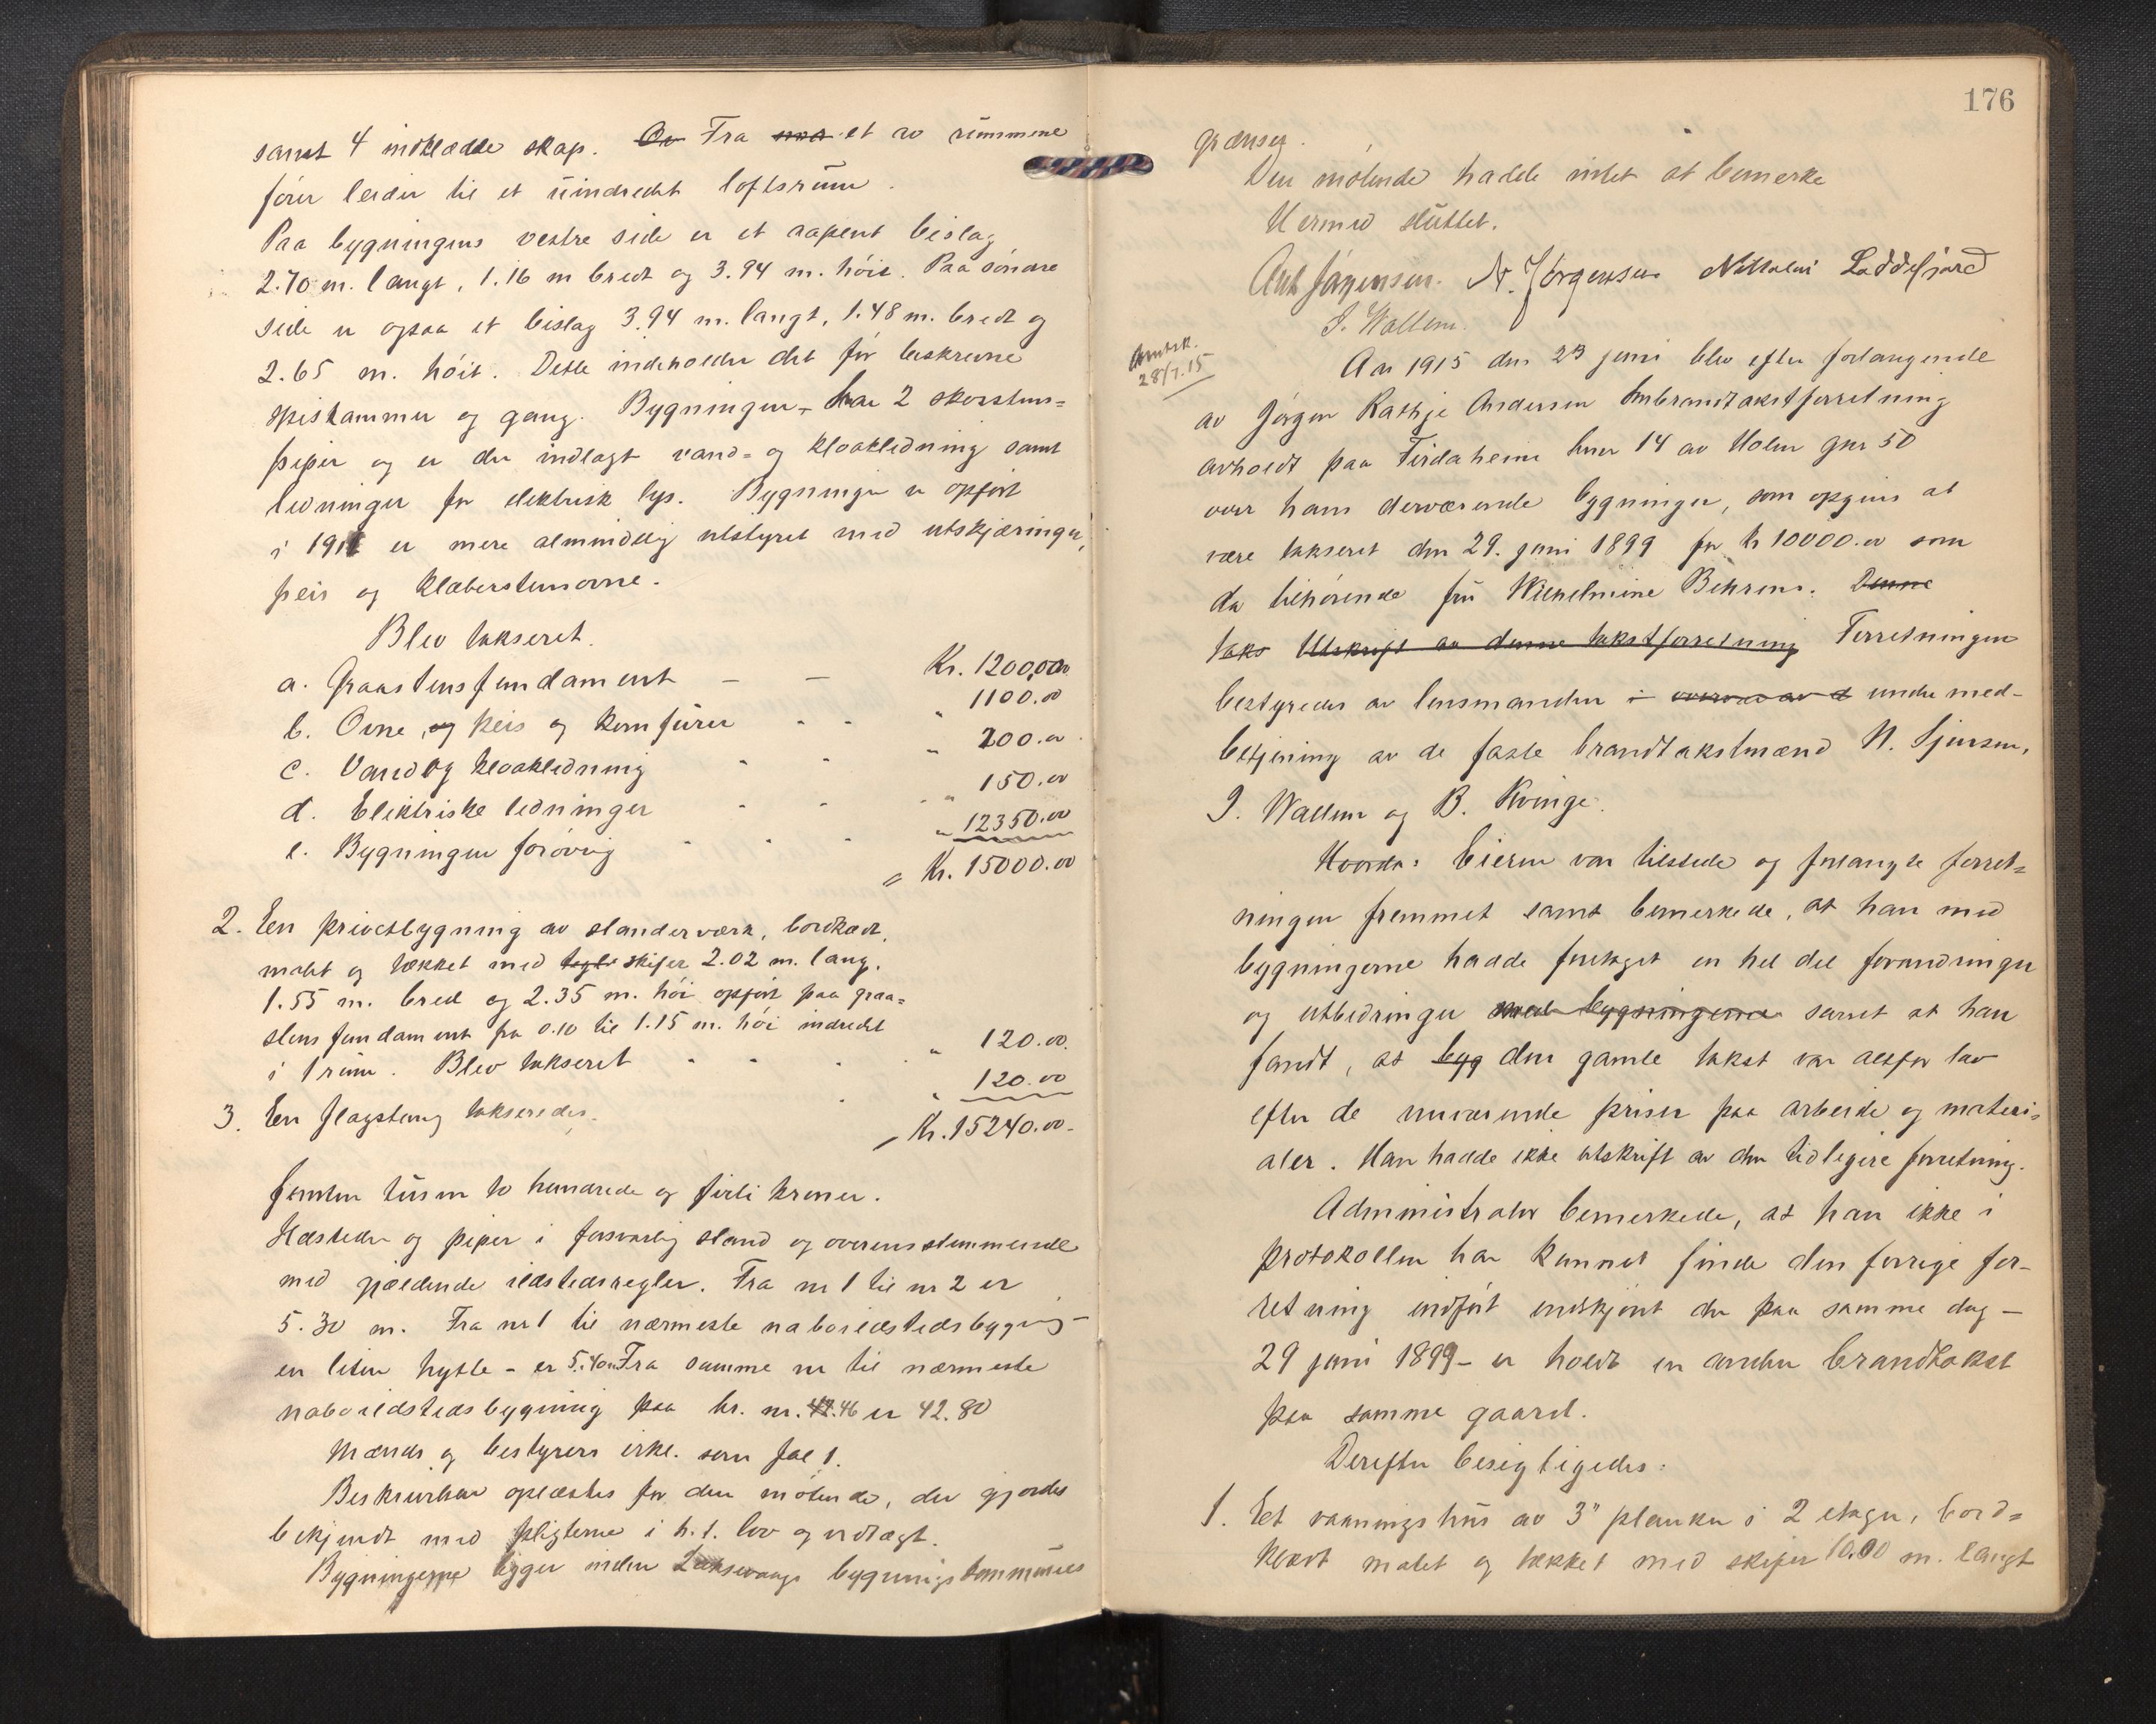 samt 4 indklædte skap. Fra et av rummene
fører leider til et uindredt loftsrum.
Paa bygningens vestre side er et aapent bislag
2.70 m. langt, 1.16 m bredt og 3.94 m. høit. Paa søndre
side er ogsaa et bislag 3.94 m. langt, 1.48 m. bredt og
2.65 m. høit. Dette indeholder det før beskrevne
spiskammer og gang. Bygningen har 2 skorstens=
piper og er der indlagt vand- og kloakledning samt
ledninger for elektrisk lys. Bygningen er opført
i 1911 er mere almindelig utstyret med utskjæringer,
peis og klæberstensovne.
Blev takseret.
a. Graastensfundament - - Kr. 1200,00
b. Ovne, og peis og komfurer - - " 1100.00
c. Vand og kloakledning - - " 200.00
d. Elektriske ledninger - - " 150.00
e. Bygningen forøvrig - - - " 12350.00
= Kr. 15000.00
2. En privetbygning av standerværk, bordkædt,
malt og tækket med tegl skifer 2.02 m. lang,
1.55 m. bred og 2.35 m. høi opført paa graa=
stensfundament fra 0.10 til 1.15 m. høi indredet
i 1 rum. Blev takseret - - - " 120.00.
3. En flagstang takseredes. - " 120.00
= Kr. 15240.00-
femten tusen to hundrede og førti kroner.
Ildsteder og piper i forsvarlig stand og overensstemmende
med gjældende ildstedsregler. Fra nr 1 til nr 2 er
5.30 m. Fra nr 1 til nærmeste naboildstedsbygning -
en liten hytte - er 5.40 m Fra samme nr til nærmeste
naboildstedsbygning paa br. nr. 46 er 42.80
Mænds og bestyrers erkl. som fol 1.
Beskrivelsen oplæstes for den møtende, der gjordes
bekjendt med pligterne i h. t. lov og vedtægt.
Bygningerne ligger inden Laksevaags bygningskommunes
176
grænser.
Den møtende hadde intet at bemerke
Hermed sluttet.
Ant Jørgensen. N. Jørgensen Nikolai Loddefjord
I. Wallem.
Avutsk.
28/7.15
Aar 1915 den 23 juni blev efter forlangende
av Jørgen Rathje Andersen ombrandtakstforretning
avholdt paa Firdaheim bnr 14 av Holen gnr 50
over hans derværende bygninger, som opgives at
være takseret den 29. juni 1899 for kr 10000.00 som
da tilhørende fru Wilhelmine Behrens. Denne
taks Utskrift av denne takstforretning Forretningen
bestyredes av lensmanden i overvær av d under med-
betjening av de faste brandtakstmænd N. Sjursen,
I. Wallem og B. Kvinge.
Hvorda: Eieren var tilstede og forlangte forret=
ningen fremmet samt bemerkede, at han med
bygningerne hadde foretaget en hel del forandringer
og utbedringer med bygningerne samt at han
fandt, at byg den gamle takst var altfor lav
efter de nuværende priser paa arbeide og materi=
aler. Han hadde ikke utskrift av den tidligere forretning.
Administrator bemerkede, at han ikke i
protokollen har kunnet finde den forrige for-
retning indført endskjønt der paa samme dag -
29 juni 1899 - er holdt en anden brandtakst
paa samme gaard.
Derefter besigtigedes:
1. Et vaaningshus av 3" planker i 2 etager, bord=
klædt malet og tækket med skifer 10.00 m. langt